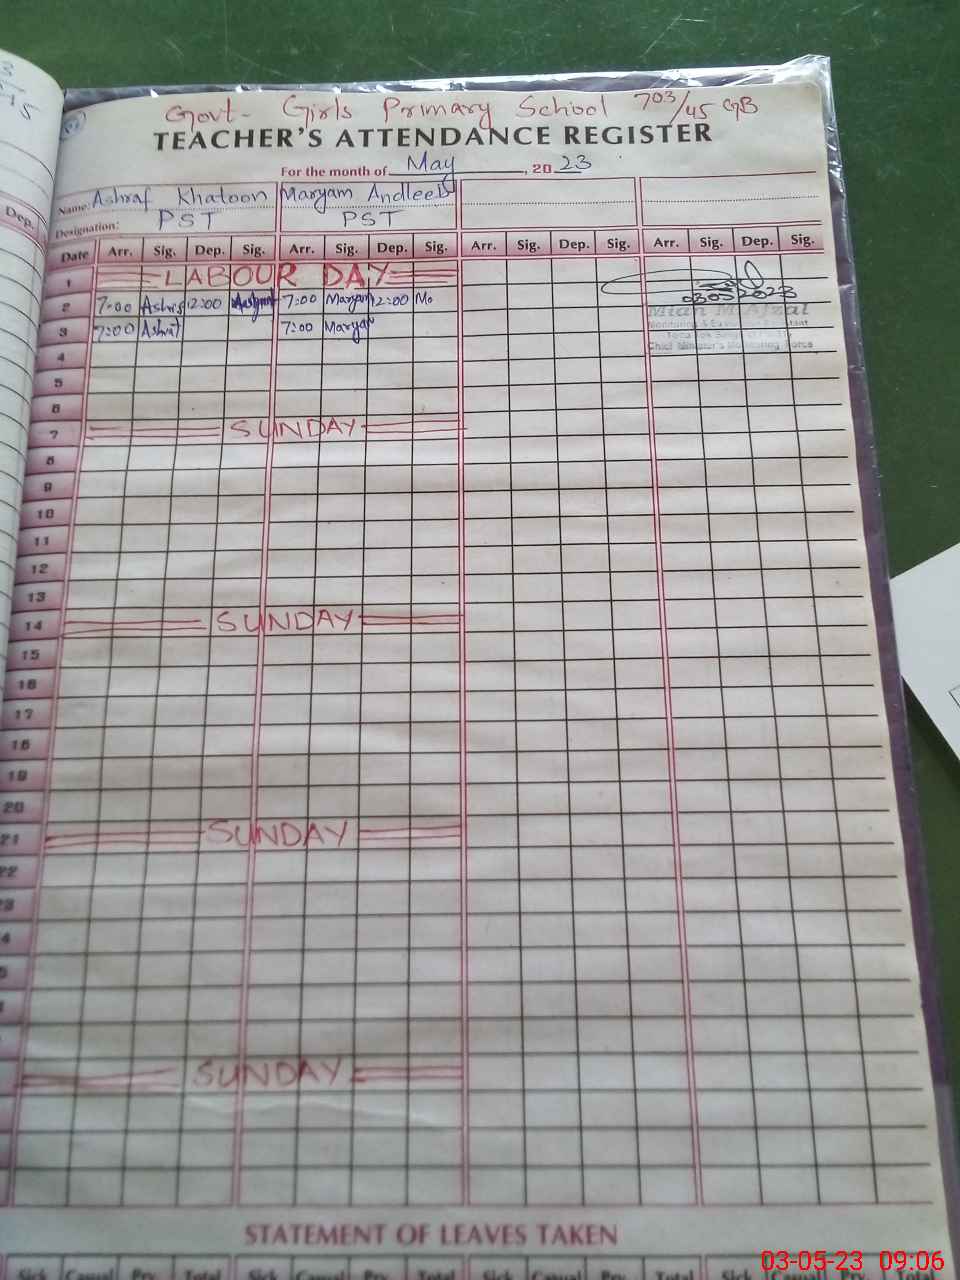 Govt- Girls Primary School 703/45 GB
TEACHER'S ATTENDANCE REGISTER
For the month of May, 2023
Name: Ashraf Khatoon Maryam Andleeb
Designation: PST PST
Dep.
Date Arr. Sig. Dep. Sig. Arr. Sig. Dep. Sig. Arr. Sig. Dep. Sig. Arr. Sig. Dep. Sig.
1 LABOUR DAY
2 7:00 Ashraf 12:00 Ashraf 7:00 Maryam 12:00 Ma
03052023
Mian M Afzal
3 7:00 Ashraf 7:00 Maryam
Chief Minister's Monitoring Force
4
5
6
7 SUNDAY
8
9
10
11
12
13
14 SUNDAY
15
16
17
18
19
20
21 SUNDAY
22
SUNDAY
STATEMENT OF LEAVES TAKEN
Sick Casual Total Sick Casual Prv. Total Sick Casual Prv. Total Sick Casual Prv. Total
03-05-23 09:06